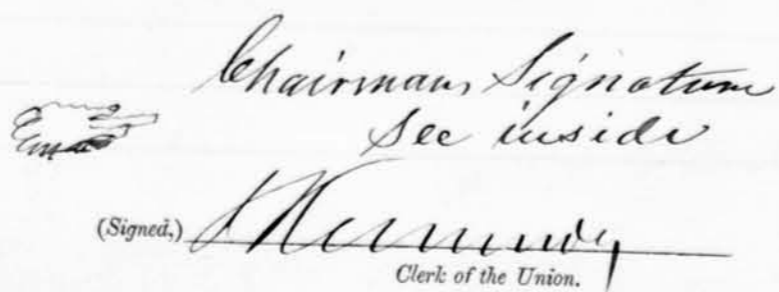 Chairmans Signature
see inside
(Signed,) J Kennedy
Clerk of the Union.